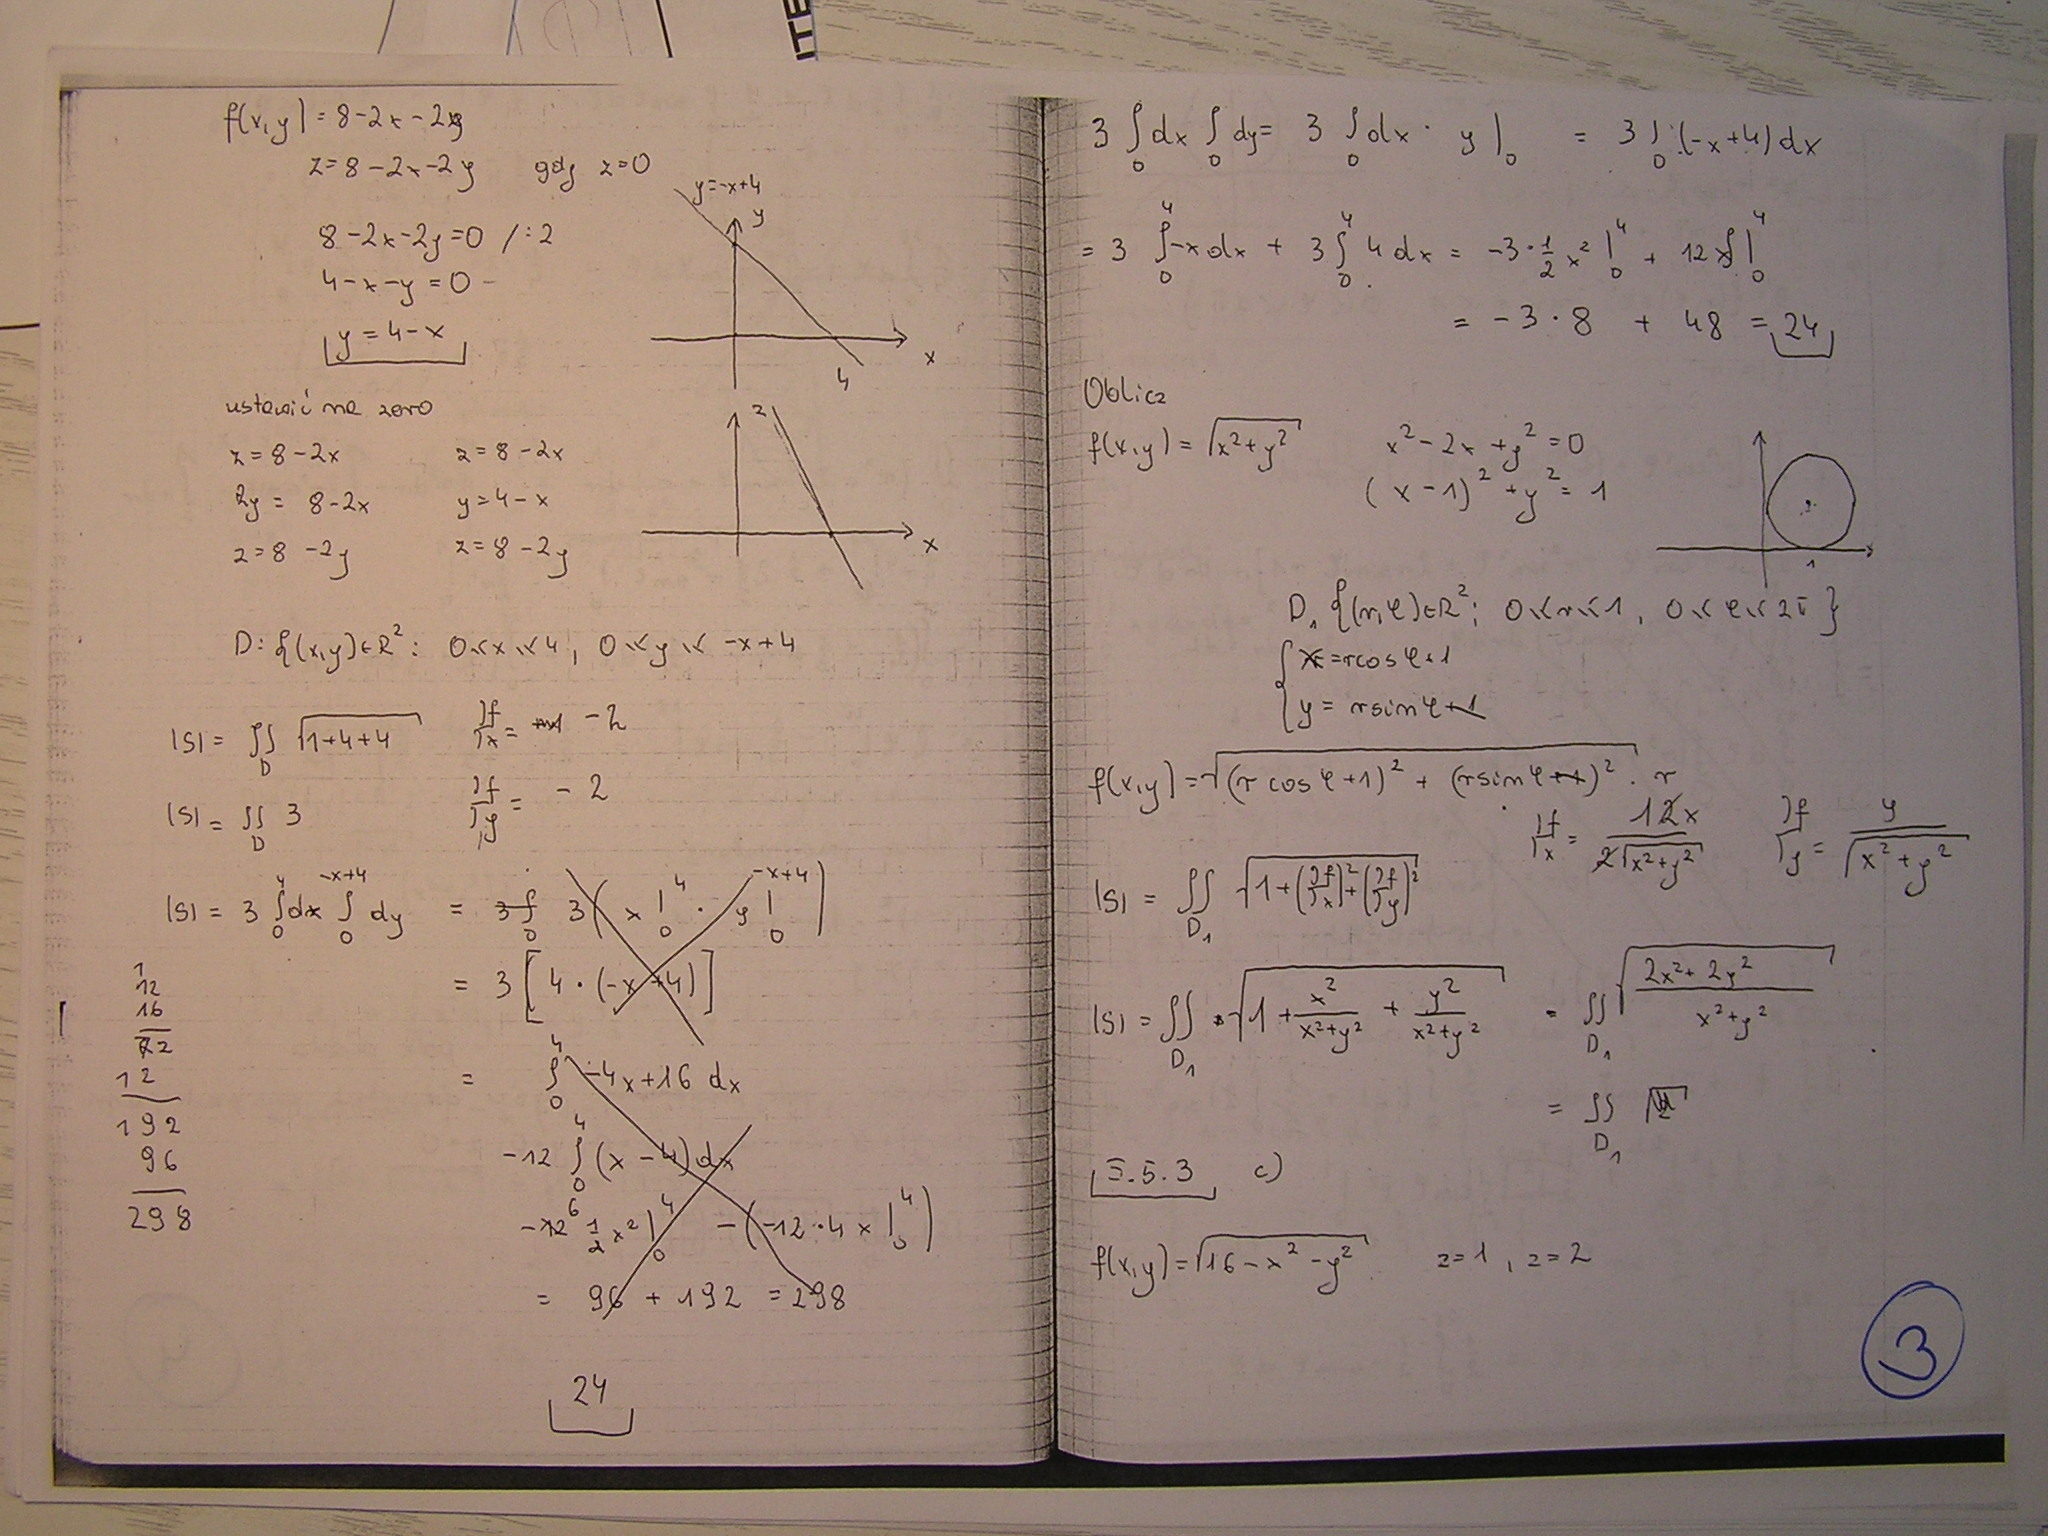 ITE
f(x,y) = 8-2x-2y
z=8-2x-2y gdy z=0
8-2x-2y=0 /:2
4-x-y=0
y=4-x
y=-x+4
y
x
4
ustawić na zero
z=8-2x z=8-2x
2y= 8-2x y=4-x
z=8-2y z=8-2y
z
x
D: {(x,y)∈R²: 0≤x≤4, 0≤y≤-x+4
|S|= ∬_D √(1+4+4) ∂f/∂x = -2
|S|= ∬_D 3 ∂f/∂y = -2
|S|= 3 ∫₀⁴dx ∫₀^(-x+4) dy = 3( x|₀⁴ · y|₀^(-x+4) )
= 3[4·(-x+4)]
= ∫₀⁴ -4x+16 dx
-12 ∫₀⁴(x-4)dx
-12 6 1/2 x²|₀⁴ -(-12·4x|₀⁴)
= 96 + 192 = 298
1
12
16
72
12
192
96
298
24
3 ∫₀dx ∫₀dy = 3 ∫₀dx · y|₀ = 3∫₀(-x+4)dx
= 3 ∫₀⁴-xdx + 3∫₀⁴ 4dx = -3·1/2 x²|₀⁴ + 12x|₀⁴
= -3·8 + 48 = 24
Oblicz
f(x,y) = √(x²+y²) x²-2x+y²=0
(x-1)²+y²=1
1
D₁ {(r,φ)∈R²; 0≤r≤1, 0≤φ≤2π}
x=rcosφ+1
y=rsinφ+1
f(x,y)=√((r cosφ+1)² + (rsinφ+1)²) · r
∂f/∂x = 12x/(2√(x²+y²)) ∂f/∂y = y/√(x²+y²)
|S| = ∬_D₁ √(1+(∂f/∂x)²+(∂f/∂y)²)
|S| = ∬_D₁ √(1+x²/(x²+y²) + y²/(x²+y²)) = ∬_D₁ √((2x²+2y²)/(x²+y²))
= ∬_D₁ √2
I.5.3 c)
f(x,y)=√(16-x²-y²) z=1, z=2
3